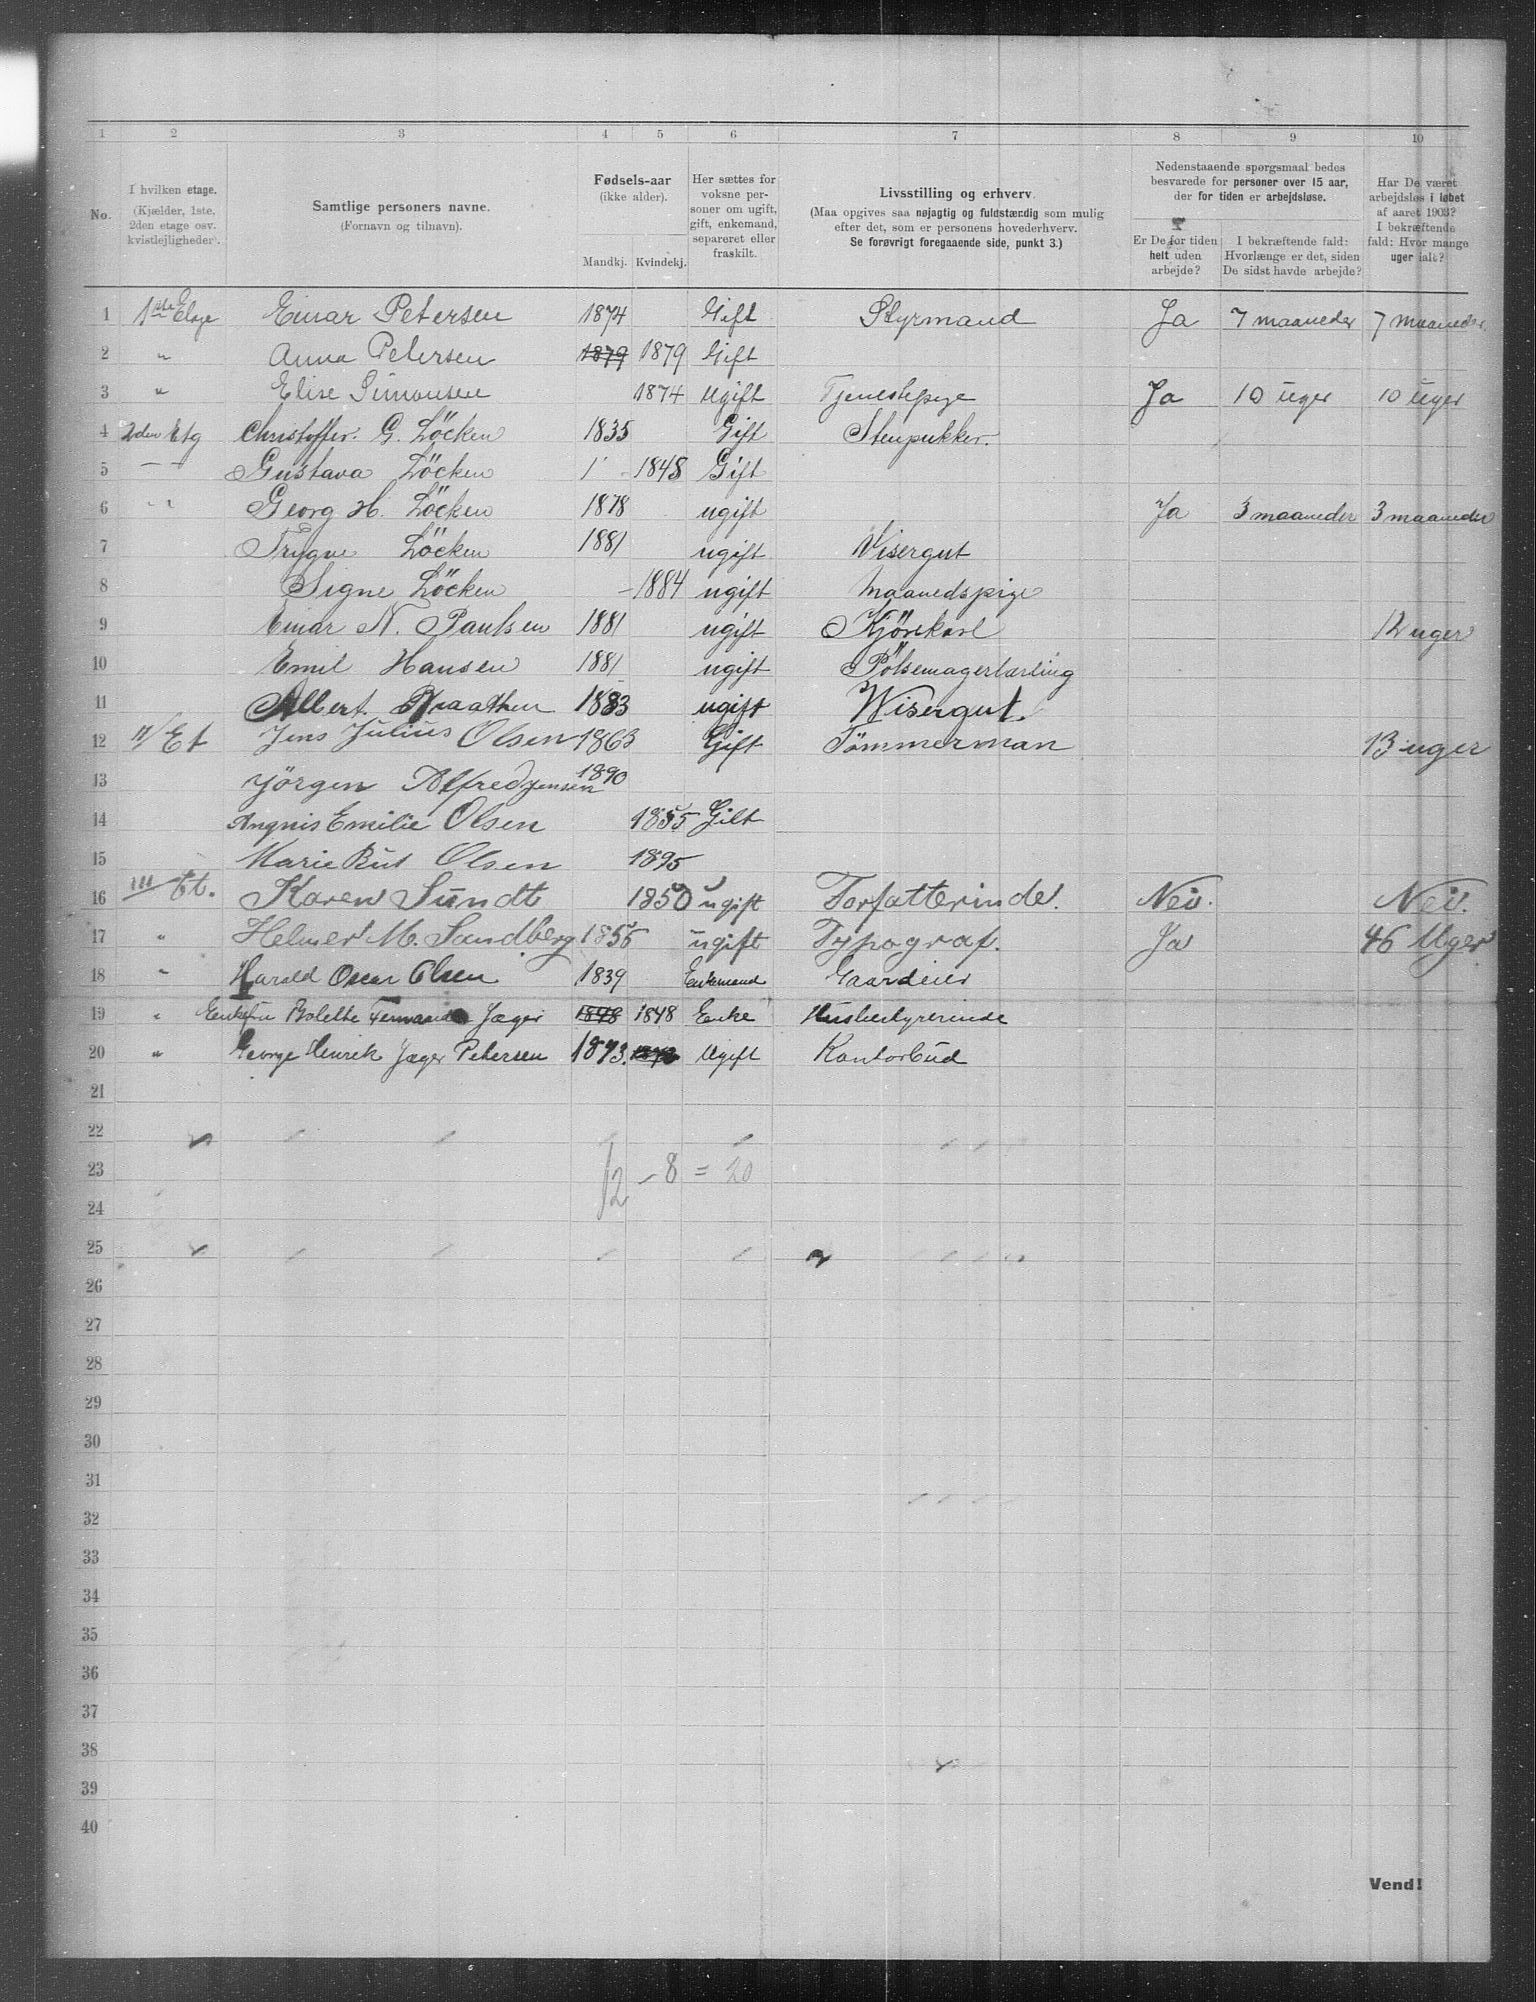 1 2 3 4 5 6 7 8 9 10
No.
I hvilken etage.
(Kjælder, 1ste,
2den etage osv.
kvistlejligheder).
Samtlige personers navne.
(Fornavn og tilnavn).
Fødsels-aar
(ikke alder).
Mandkj. Kvindekj.
Her sættes for
voksne per-
soner om ugift,
gift, enkemand,
separeret eller
fraskilt.
Livsstilling og erhverv.
(Maa opgives saa nøjagtig og fuldstændig som mulig
efter det, som er personens hovederhverv.
Se forøvrigt foregaaende side, punkt 3.)
Nedenstaaende spørgsmaal bedes
besvarede for personer over 15 aar,
der for tiden er arbejdsløse.
Er De for tiden
helt uden
arbejde?
I bekræftende fald:
Hvorlænge er det, siden
De sidst havde arbejde?
Har De været
arbejdsløs i løbet
af aaret 1903?
I bekræftende
fald: Hvor mange
uger ialt?
1 1ste Etage Einar Petersen 1874 Gift Styrmand Ja 7 maaneder 7 maaneder
2 " Anna Petersen 1879 1879 Gift
3 " Elise Simonsen 1874 Ugift Tjenestepige Ja 10 uger 10 uger
4 2den Etg Christoffer. G. Löcken 1835 Gift Stenpukker.
5 — " — Gustava Löcken 1848 Gift
6 " Georg H. Löcken 1878 ugift Ja 3 maaneder 3 maaneder
7 Trygve Löcken 1881 ugift Visergut
8 Signe Löcken 1884 ugift Maanedspige
9 Einar N. Paulsen 1881 ugift Kjörekarl 12 uger
10 Emil Hansen 1881 ugift Pölsemagerlærling
11 Albert Braathen 1883 ugift Wisergut.
12 II/ Et Jens Julius Olsen 1863 Gift Tömmerman 13 uger
13 Jörgen Alfred Jensen 1890
14 Angnis Emilie Olsen 1855 Gift
15 Marie Olsen 1895
16 III Et. Karen Sundt 1850 ugift Forfatterinde. Nei. Nei.
17 " Helmer M. Sandberg 1855 ugift Typograf. Ja 46 Uger
18 " Harald Oscar Olsen 1839 Enkemand Gaardeier
19 " Enkefru Bolette Jæger 1848 1848 Enke Husbestyrerinde
20 " George Henrik Jæger Petersen 1873. 1873 Ugift Kontorbud
21
22
23 12 – 8 = 20
24
25
26
27
28
29
30
31
32
33
34
35
36
37
38
39
40
Vend!